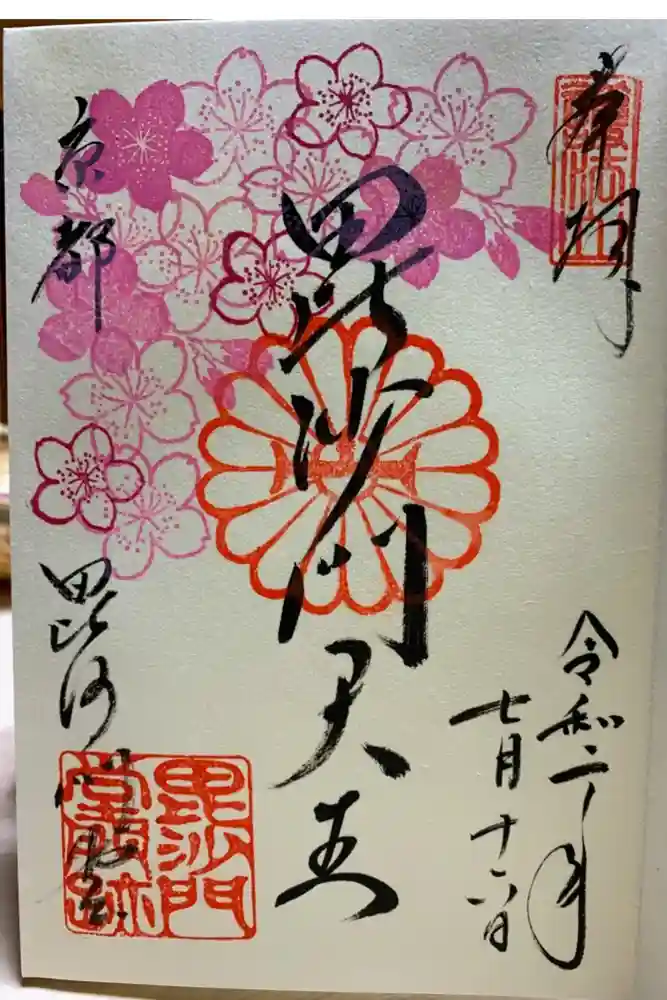 奉拝
護法山
令和二年
七月十六日
毘沙門天王
京都
毘沙門堂
毘沙門
堂門跡